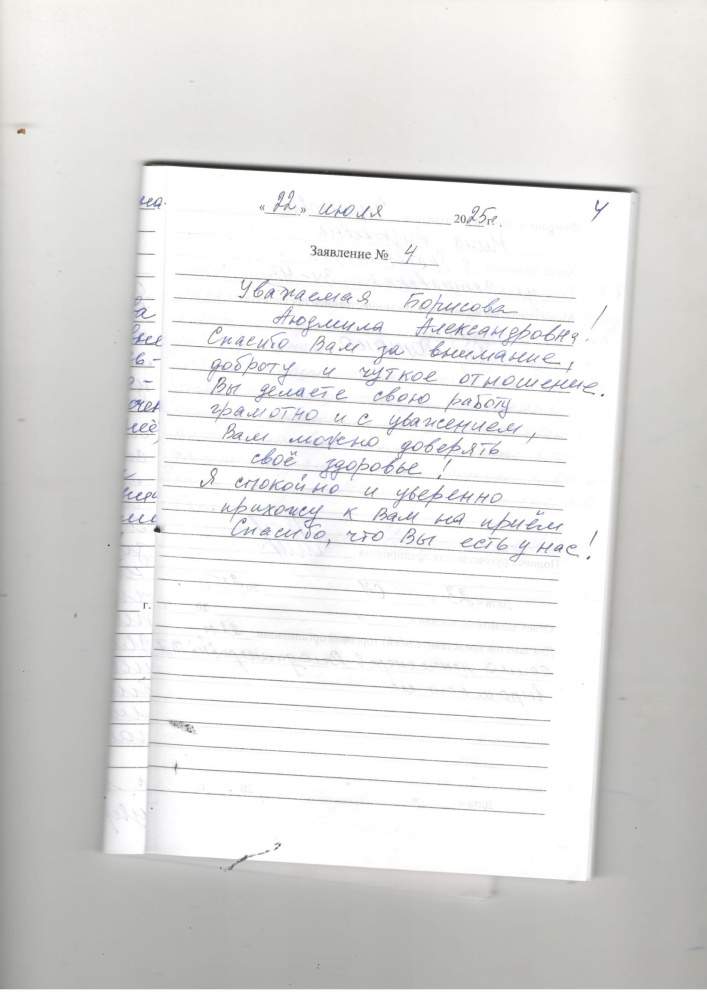 «22» июля 2025г. 4
Заявление № 4
Уважаемая Борисова
Людмила Александровна!
Спасибо Вам за внимание,
доброту и чуткое отношение.
Вы делаете свою работу
грамотно и с уважением,
Вам можно доверять
своё здоровье!
Я спокойно и уверенно
прихожу к Вам на приём
Спасибо, что Вы есть у нас!
г.